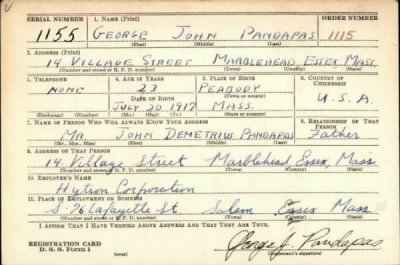 SERIAL NUMBER 1. NAME (Print) ORDER NUMBER
1155 GEORGE JOHN PANDAPAS 1115
(First) (Middle) (Last)
2. ADDRESS (Print)
14 VILLAGE STREET MARBLEHEAD, ESSEX MASS.
(Number and street or R. F. D. number) (Town) (County) (State)
3. TELEPHONE 4. AGE IN YEARS 5. PLACE OF BIRTH 6. COUNTRY OF CITIZENSHIP
NONE 23 PEABODY
(Town or county)
DATE OF BIRTH U.S.A.
JULY 20 1917 MASS.
(Exchange) (Number) (Mo.) (Day) (Yr.) (State or country)
7. NAME OF PERSON WHO WILL ALWAYS KNOW YOUR ADDRESS 8. RELATIONSHIP OF THAT PERSON
MR. JOHN DEMETRIUS PANDAPAS Father
(Mr., Mrs., Miss) (First) (Middle) (Last)
9. ADDRESS OF THAT PERSON
14 Village Street Marblehead Essex, Mass
(Number and street or R. F. D. number) (Town) (County) (State)
10. EMPLOYER'S NAME
Hytron Corporation
11. PLACE OF EMPLOYMENT OR BUSINESS
76 Lafayette St Salem Essex Mass
(Number and street or R. F. D. number) (Town) (County) (State)
I AFFIRM THAT I HAVE VERIFIED ABOVE ANSWERS AND THAT THEY ARE TRUE.
REGISTRATION CARD
D. S. S. Form 1 George J. Pandapas
(Registrant's signature)